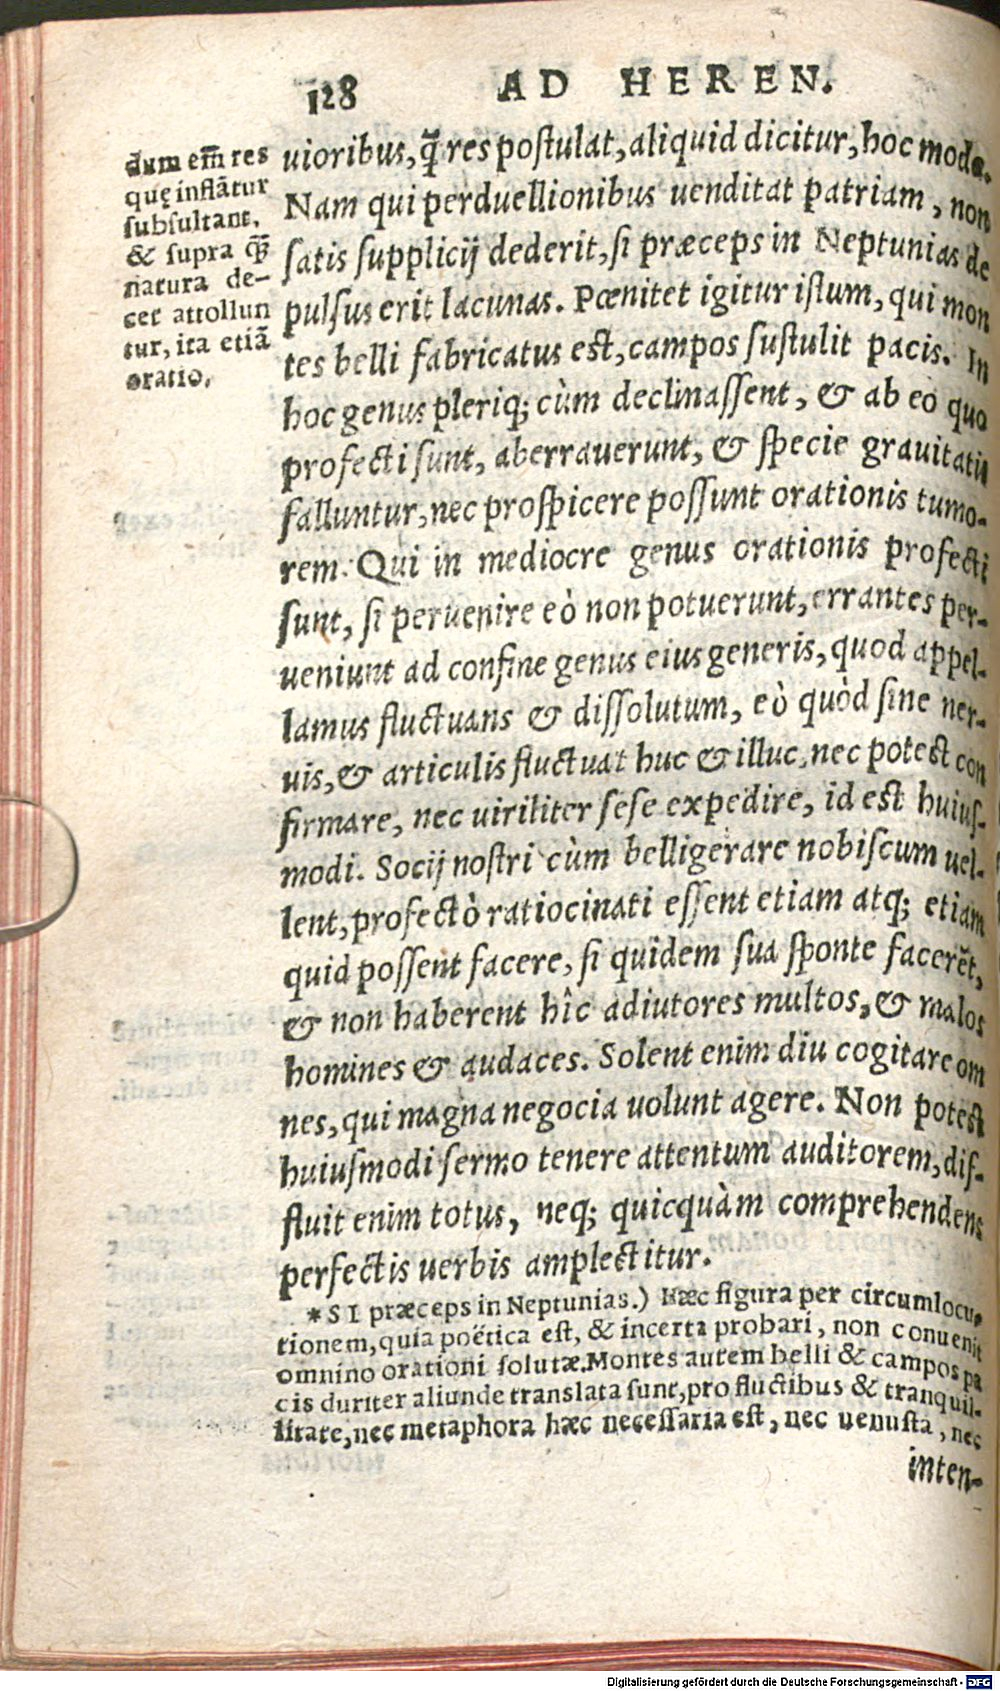 128 AD HEREN.
dum em̃ res
quę inflãtur
subsultant,
& supra q̃
natura de-
cet attollun
tur, ita etiã
oratio.
uioribus, q̃ res postulat, aliquid dicitur, hoc modo.
Nam qui perduellionibus uenditat patriam, non
satis supplicij dederit, si præceps in Neptunias de
pulsus erit lacunas. Pœnitet igitur istum, qui mon
tes belli fabricatus est, campos sustulit pacis. In
hoc genus pleriq; cùm declinassent, & ab eo quo
profecti sunt, aberrauerunt, & specie grauitatis
falluntur, nec prospicere possunt orationis tumo-
rem. Qui in mediocre genus orationis profecti
sunt, si peruenire eò non potuerunt, errantes per-
ueniunt ad confine genus eius generis, quod appel-
lamus fluctuans & dissolutum, eò quòd sine ner-
uis, & articulis fluctuat huc & illuc, nec potest con
firmare, nec uiriliter sese expedire, id est huius-
modi. Socij nostri cùm belligerare nobiscum uel-
lent, profectò ratiocinati essent etiam atq; etiam
quid possent facere, si quidem sua sponte facerẽt,
& non haberent hîc adiutores multos, & malos
homines & audaces. Solent enim diu cogitare om
nes, qui magna negocia uolunt agere. Non potest
huiusmodi sermo tenere attentum auditorem, dif-
fluit enim totus, neq; quicquàm comprehendens
perfectis uerbis amplectitur.
*SI præceps in Neptunias.) Hæc figura per circumlocu-
tionem, quia poëtica est, & incerta probari, non conuenit
omnino orationi solutæ. Montes autem belli & campos pa
cis duriter aliunde translata sunt, pro fluctibus & tranquil-
litate, nec metaphora hæc necessaria est, nec uenusta, nec
inten-
Digitalisierung gefördert durch die Deutsche Forschungsgemeinschaft - DFG